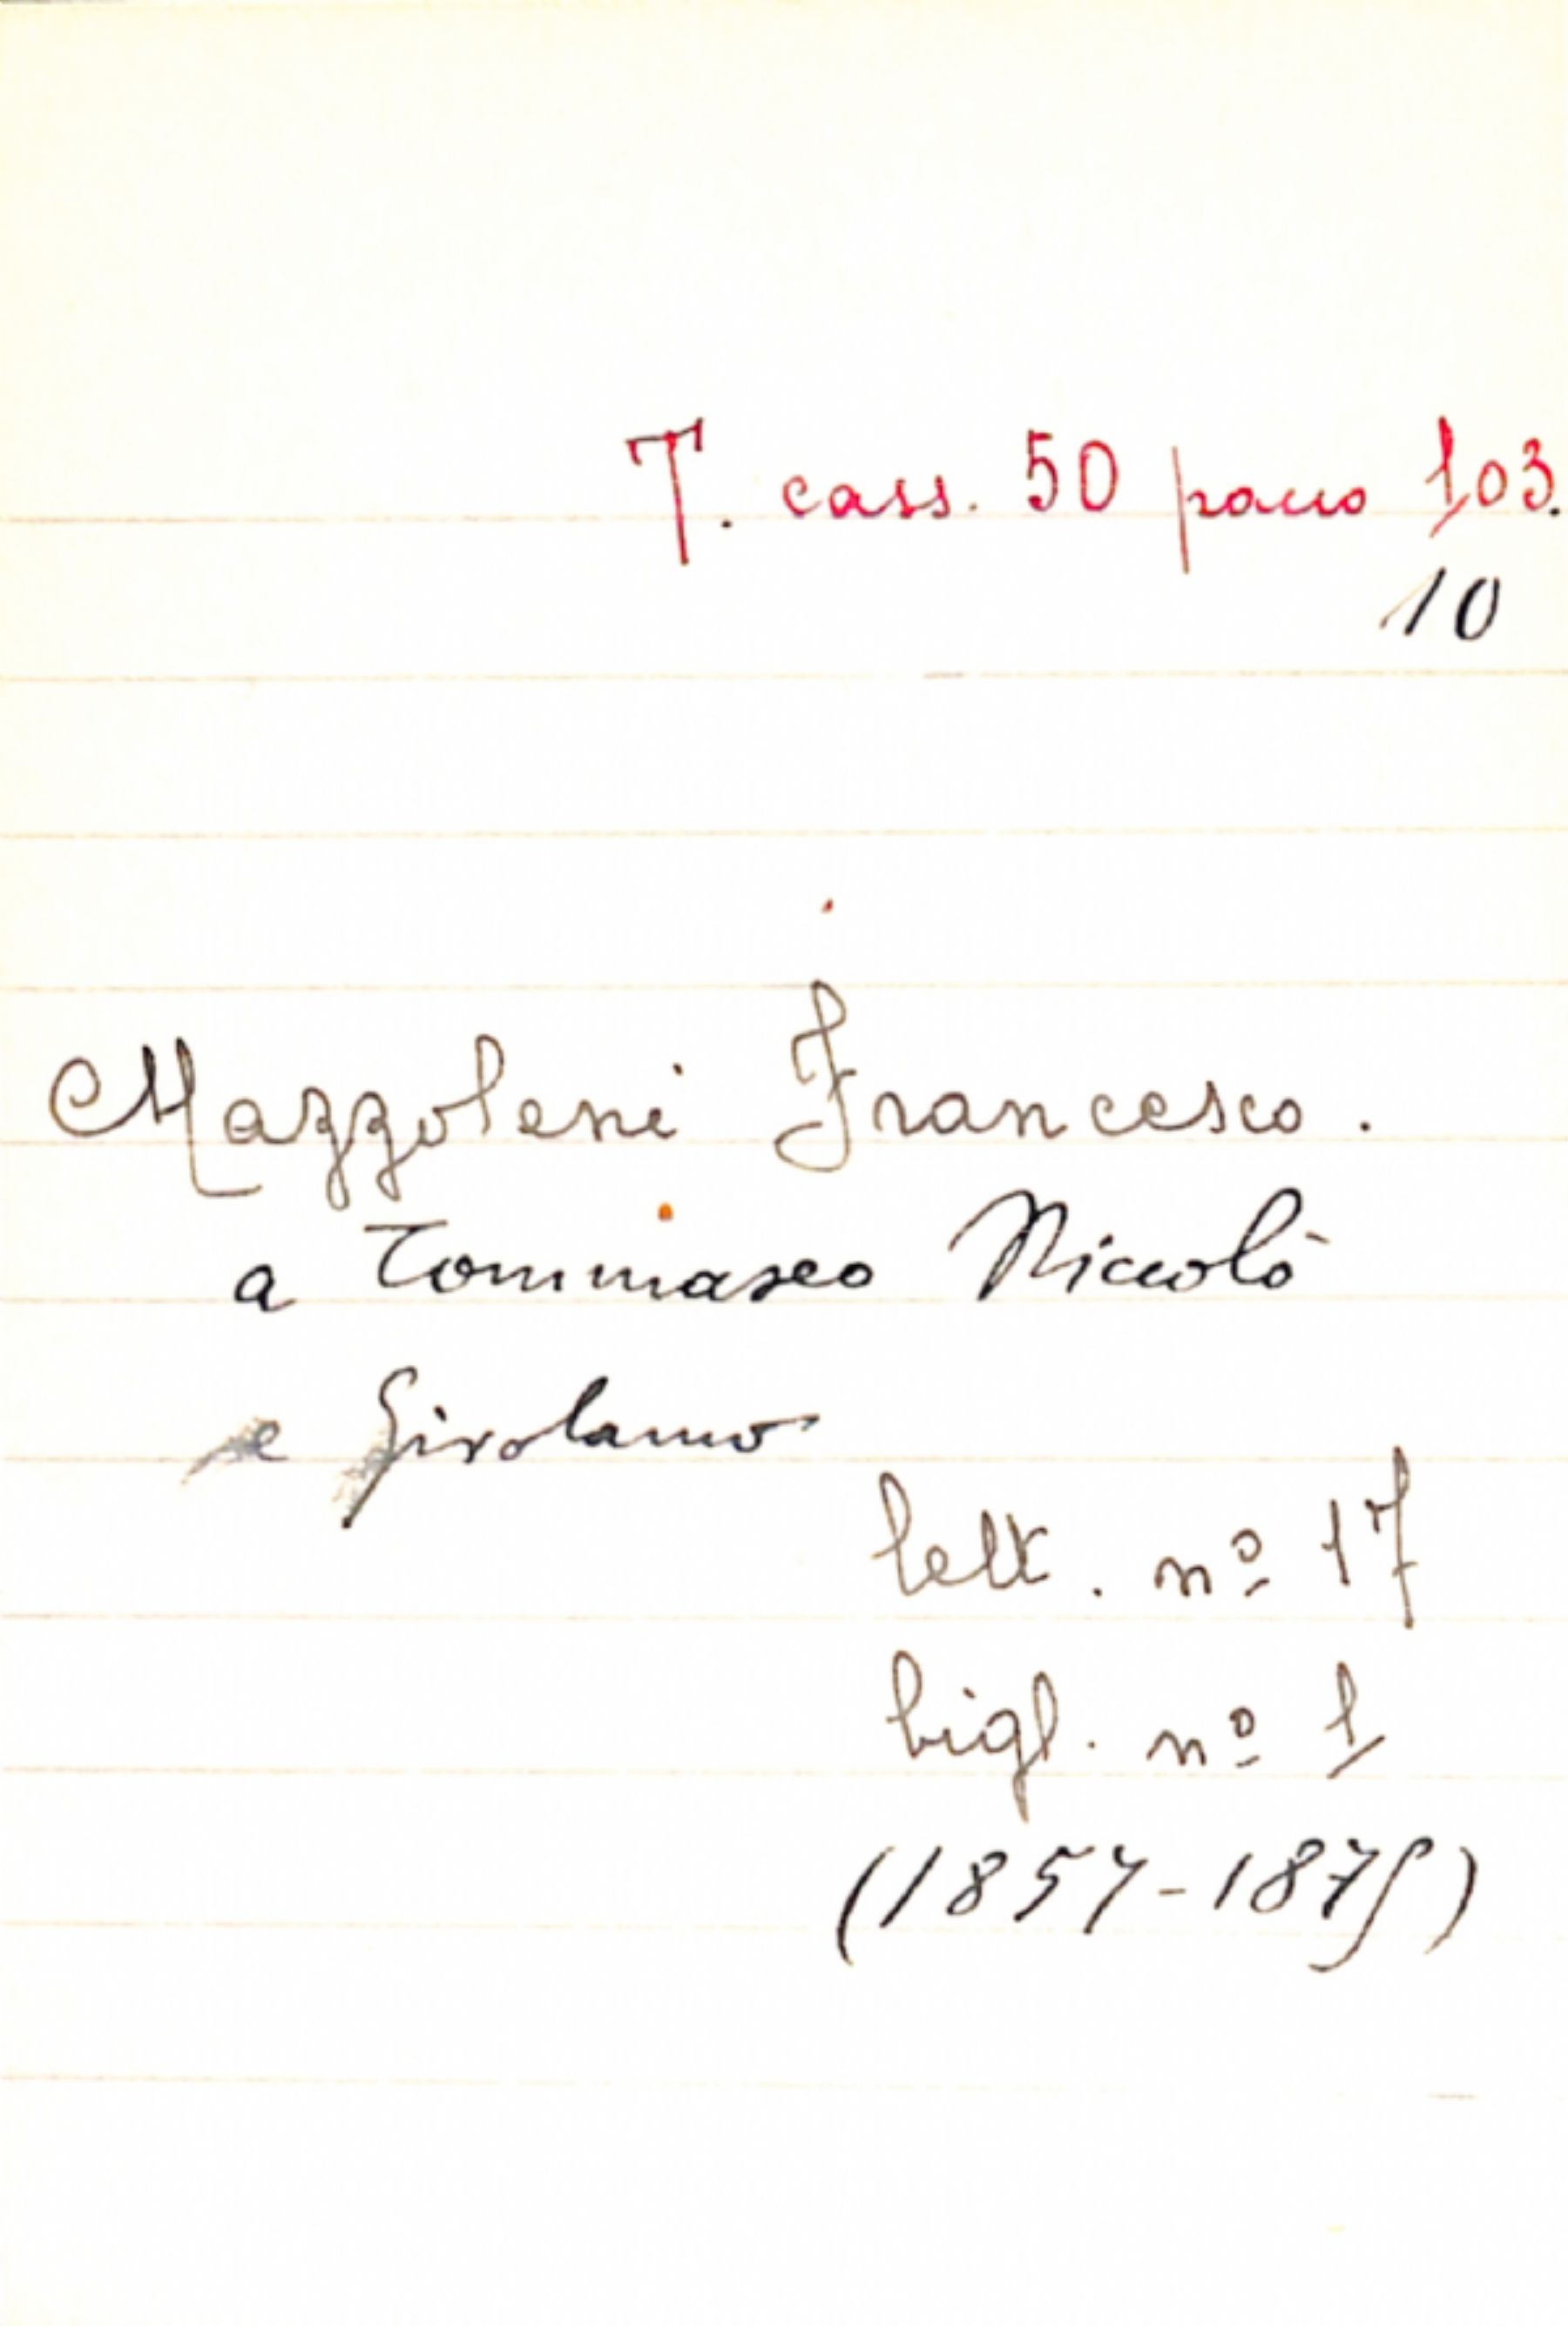 T. cass. 50 pacco 103.
10
Mazzoleni Francesco.
a Tommaseo Niccolò
e Girolamo
lett. nº 17
bigl. nº 1
(1857-1875)